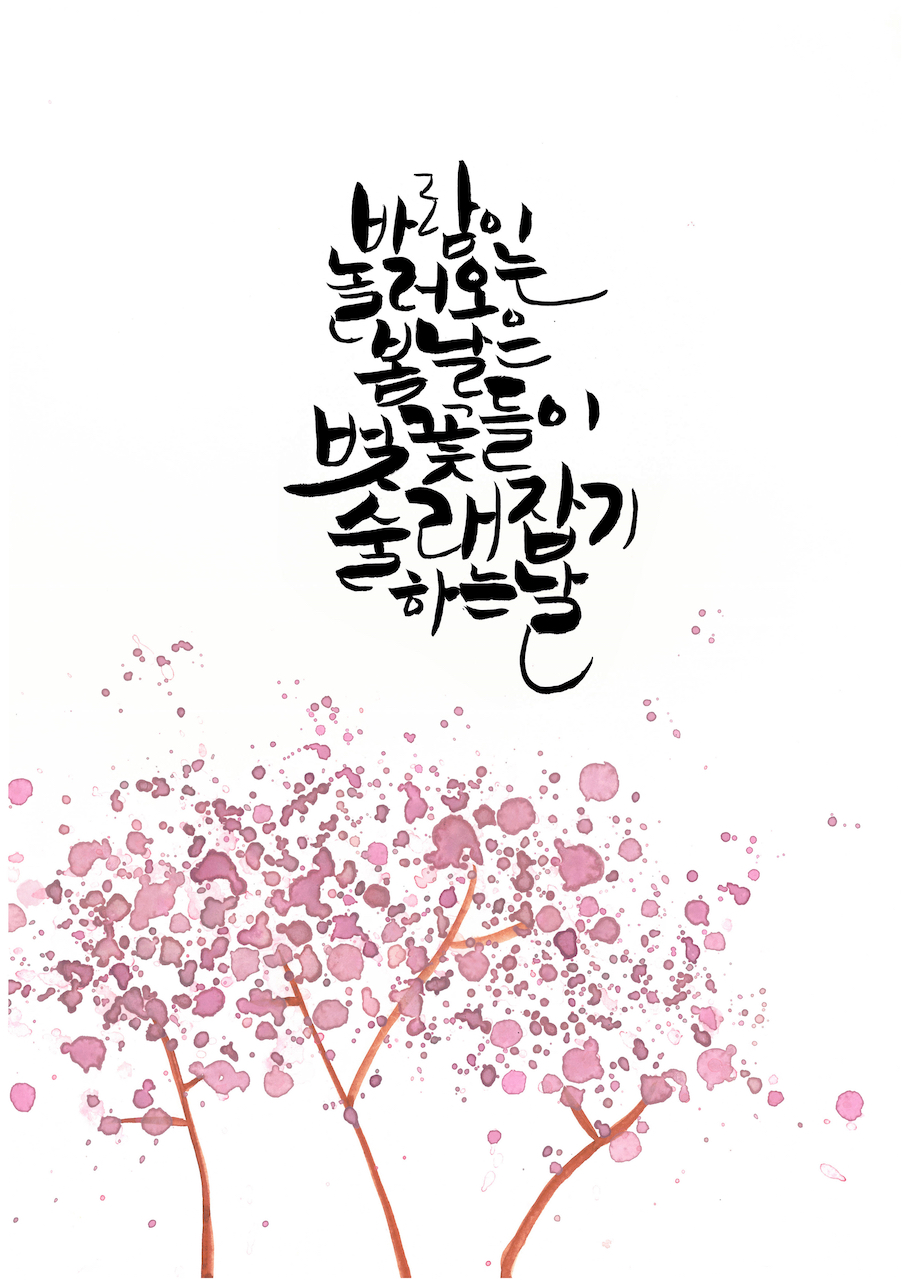 바람이
놀러오는
봄날은
벚꽃들이
술래잡기
하는날